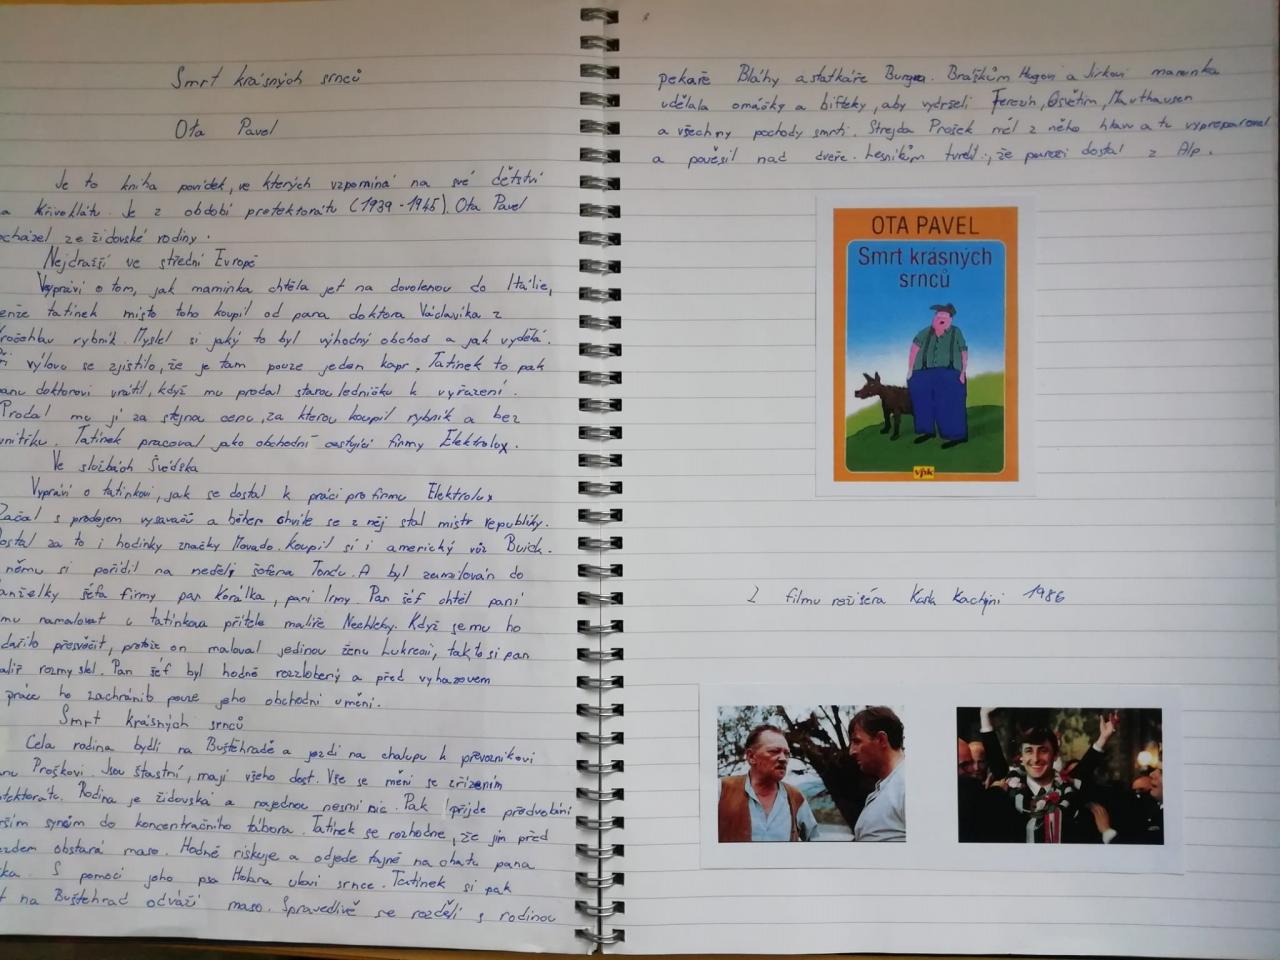 Smrt krásných srnců
Ota Pavel
Je to kniha povídek, ve kterých vzpomíná na své dětství
a Křivoklátu. Je z období protektorátu (1939-1945). Ota Pavel
ocházel ze židovské rodiny.
Nejdražší ve střední Evropě
Vypráví o tom, jak maminka chtěla jet na dovolenou do Itálie,
enže tatínek místo toho koupil od pana doktora Václavíka z
rybník. Myslel si jaký to byl výhodný obchod a jak vydělá.
ři výlovu se zjistilo, že je tam pouze jeden kapr. Tatínek to pak
anu doktorovi vrátil, když mu prodal starou ledničku k vyřazení.
Prodal mu ji za stejnou cenu, za kterou koupil rybník a bez
vnitřku. Tatínek pracoval jako obchodní cestující firmy Elektrolux.
Ve službách Švédska
Vypráví o tatínkovi, jak se dostal k práci pro firmu Elektrolux
Začal s prodejem vysavačů a během chvíle se z něj stal mistr republiky.
ostal za to i hodinky značky Movado. Koupil si i americký vůz Buick.
němu si pořídil na neděli šoféra Tondu. A byl zamilován do
anželky šéfa firmy pan Korálka, paní Irmy. Pan šéf chtěl paní
mu namalovat u tatínkova přítele malíře Nechleby. Když se mu ho
dařilo přesvěčit, protože on maloval jedinou ženu Lukrecii, tak to si pan
alíř rozmyslel. Pan šéf byl hodně rozzlobený a před vyhazovem
práce ho zachránilo pouze jeho obchodní umění.
Smrt krásných srnců
Celá rodina bydlí na Buštěhradě a jezdí na chalupu k převozníkovi
anu Proškovi. Jsou šťastní, mají všeho dost. Vše se mění se zřízením
otektorátu. Rodina je židovská a najednou nesmí nic. Pak přijde předvolání
rším synům do koncentračního tábora. Tatínek se rozhodne, že jim před
zdem obstará maso. Hodně riskuje a odjede tajně na chatu pana
ška. S pomocí jeho psa Holana uloví srnce. Tatínek si pak
na Buštěhrad odváží maso. Spravedlivě se rozdělí s rodinou
pekaře Bláhy a statkáře Burgra. Braškům Hugovi a Jirkovi maminka
udělala omáčky a bifteky, aby vydrželi Terezín, Osvětim, Mauthausen
a všechny pochody smrti. Strejda Prošek měl z něho hlavu a tu vypreparoval
a pověsil nad dveře. Lesníkům tvrdil, že paroží dostal z Alp.
OTA PAVEL
Smrt krásných
srnců
vbk
Z filmu režiséra Karla Kachyni 1986